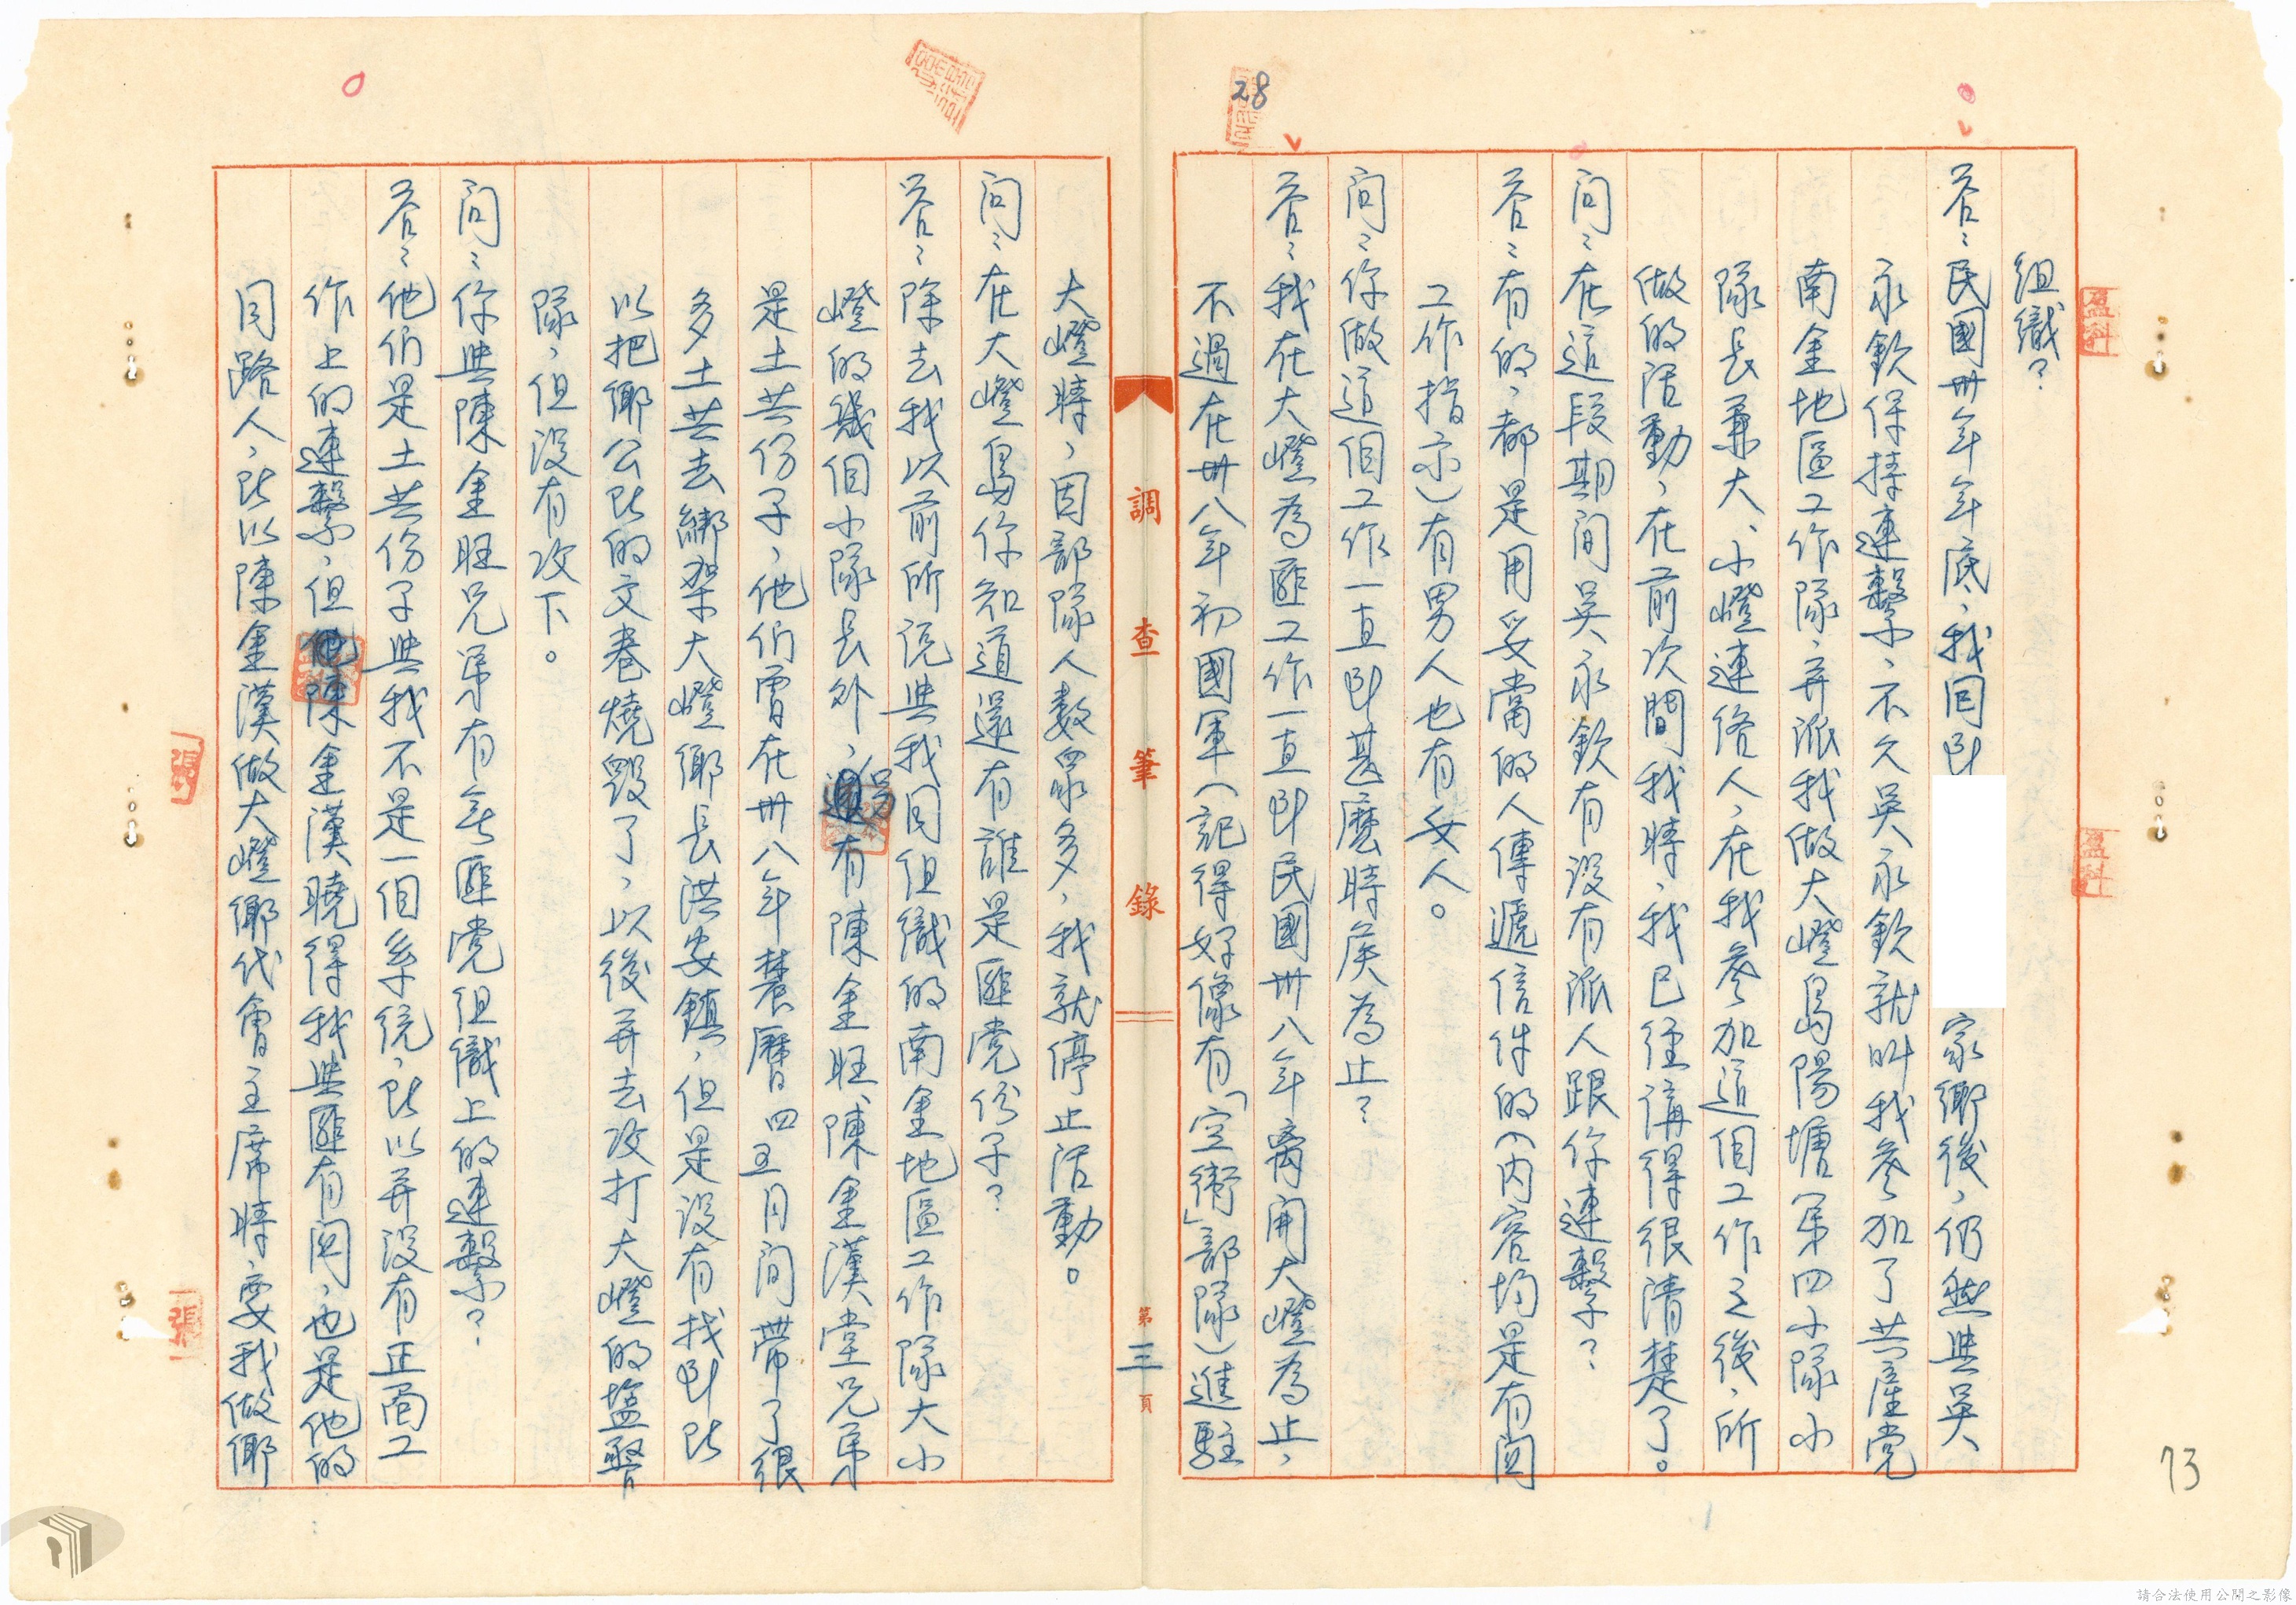 組織？
答：民國卅年年底，我回到
家鄉後，仍然與吳
永欽保持連繫，不久吳永欽就叫我參加了共產党
南金地區工作隊，并派我做大嶝島陽塘第四小隊小
隊長兼大、小嶝連络人，在我參加這個工作之後，所
做的活動，在前次間我時，我已經講得很清楚了。
問：在這段期间吳永欽有没有派人跟你連繫？
答：有的，都是用妥當的人傳遞信件的（内容均是有関
工作指示）有男人也有女人。
問：你做這個工作一直到甚麼時侯為止？
答：我在大嶝為匪工作一直到民國卅八年离開大嶝為止，
不過在卅八年初國軍（記得好像有「空衛」部隊）進駐
28
調查筆錄
第三頁
大嶝時，因部隊人數眾多，我就停止活動。
問：在大嶝島你知道還有誰是匪党份子？
答：除去我以前所説與我同組織的南金地區工作隊大小
嶝的幾個小隊長外，另有陳金旺、陳金漢堂兄弟
是土共份子，他們曾在卅八年農曆四五月间帶了很
多土共去綁架大嶝鄉長洪安鎮，但是没有找到所
以把鄉公所的文卷燒毁了，以後并去攻打大嶝的盐警
隊，但没有攻下。
問：你與陳金旺兄弟有無匪党组織上的連繫？
答：他们是土共份子與我不是一個系統，所以并没有正面工
作上的連繫，但陳金漢曉得我與匪有関，也是他的
同路人，所以陳金漢做大嶝鄉代會主席時，要我做鄉
73
盖科
盖科
張
張
請合法使用公開之影像